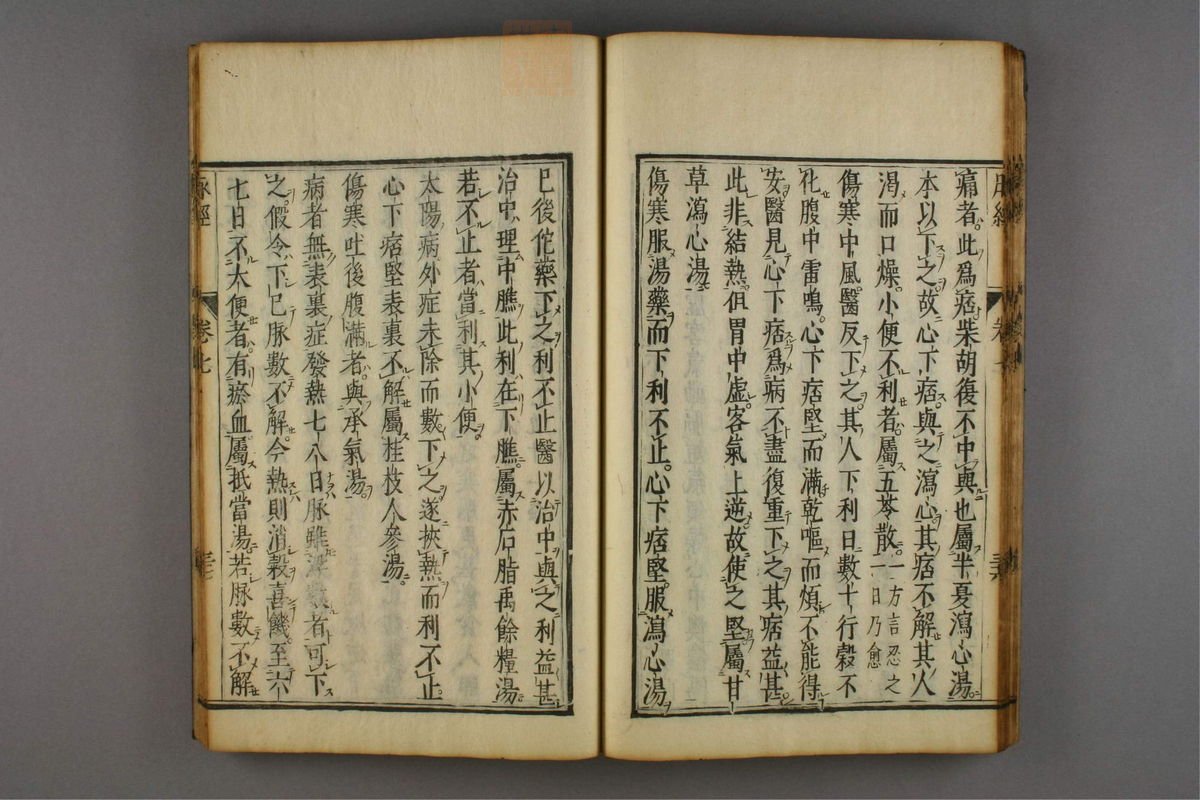 痛者此爲痞柴胡復不中與也屬半夏瀉心湯
本以下之故心下痞與之瀉心其痞不解其人
渴而口燥小便不利者屬五苓散一方言忍之一日乃愈
傷寒中風醫反下之其人下利日數十行穀不
化腹中雷鳴心下痞堅而滿乾嘔而煩不能得
安醫見心下痞爲病不盡復重下之其痞益甚
此非結熱但胃中虛客氣上逆故使之堅屬甘
草瀉心湯
傷寒服湯藥而下利不止心下痞堅服瀉心湯
已後佗藥下之利不止醫以治中與之利益甚
治中理中膲此利在下膲屬赤石脂禹餘糧湯
若不止者當利其小便
太陽病外症未除而數下之遂挾熱而利不止
心下痞堅表裏不解屬桂枝人參湯
傷寒吐後腹滿者與承氣湯
病者無表裏症發熱七八日脉雖浮數者可下
之假令下已脉數不解今熱則消穀喜饑至六
七日不大便者有瘀血屬抵當湯若脉數不解
脉經 卷七